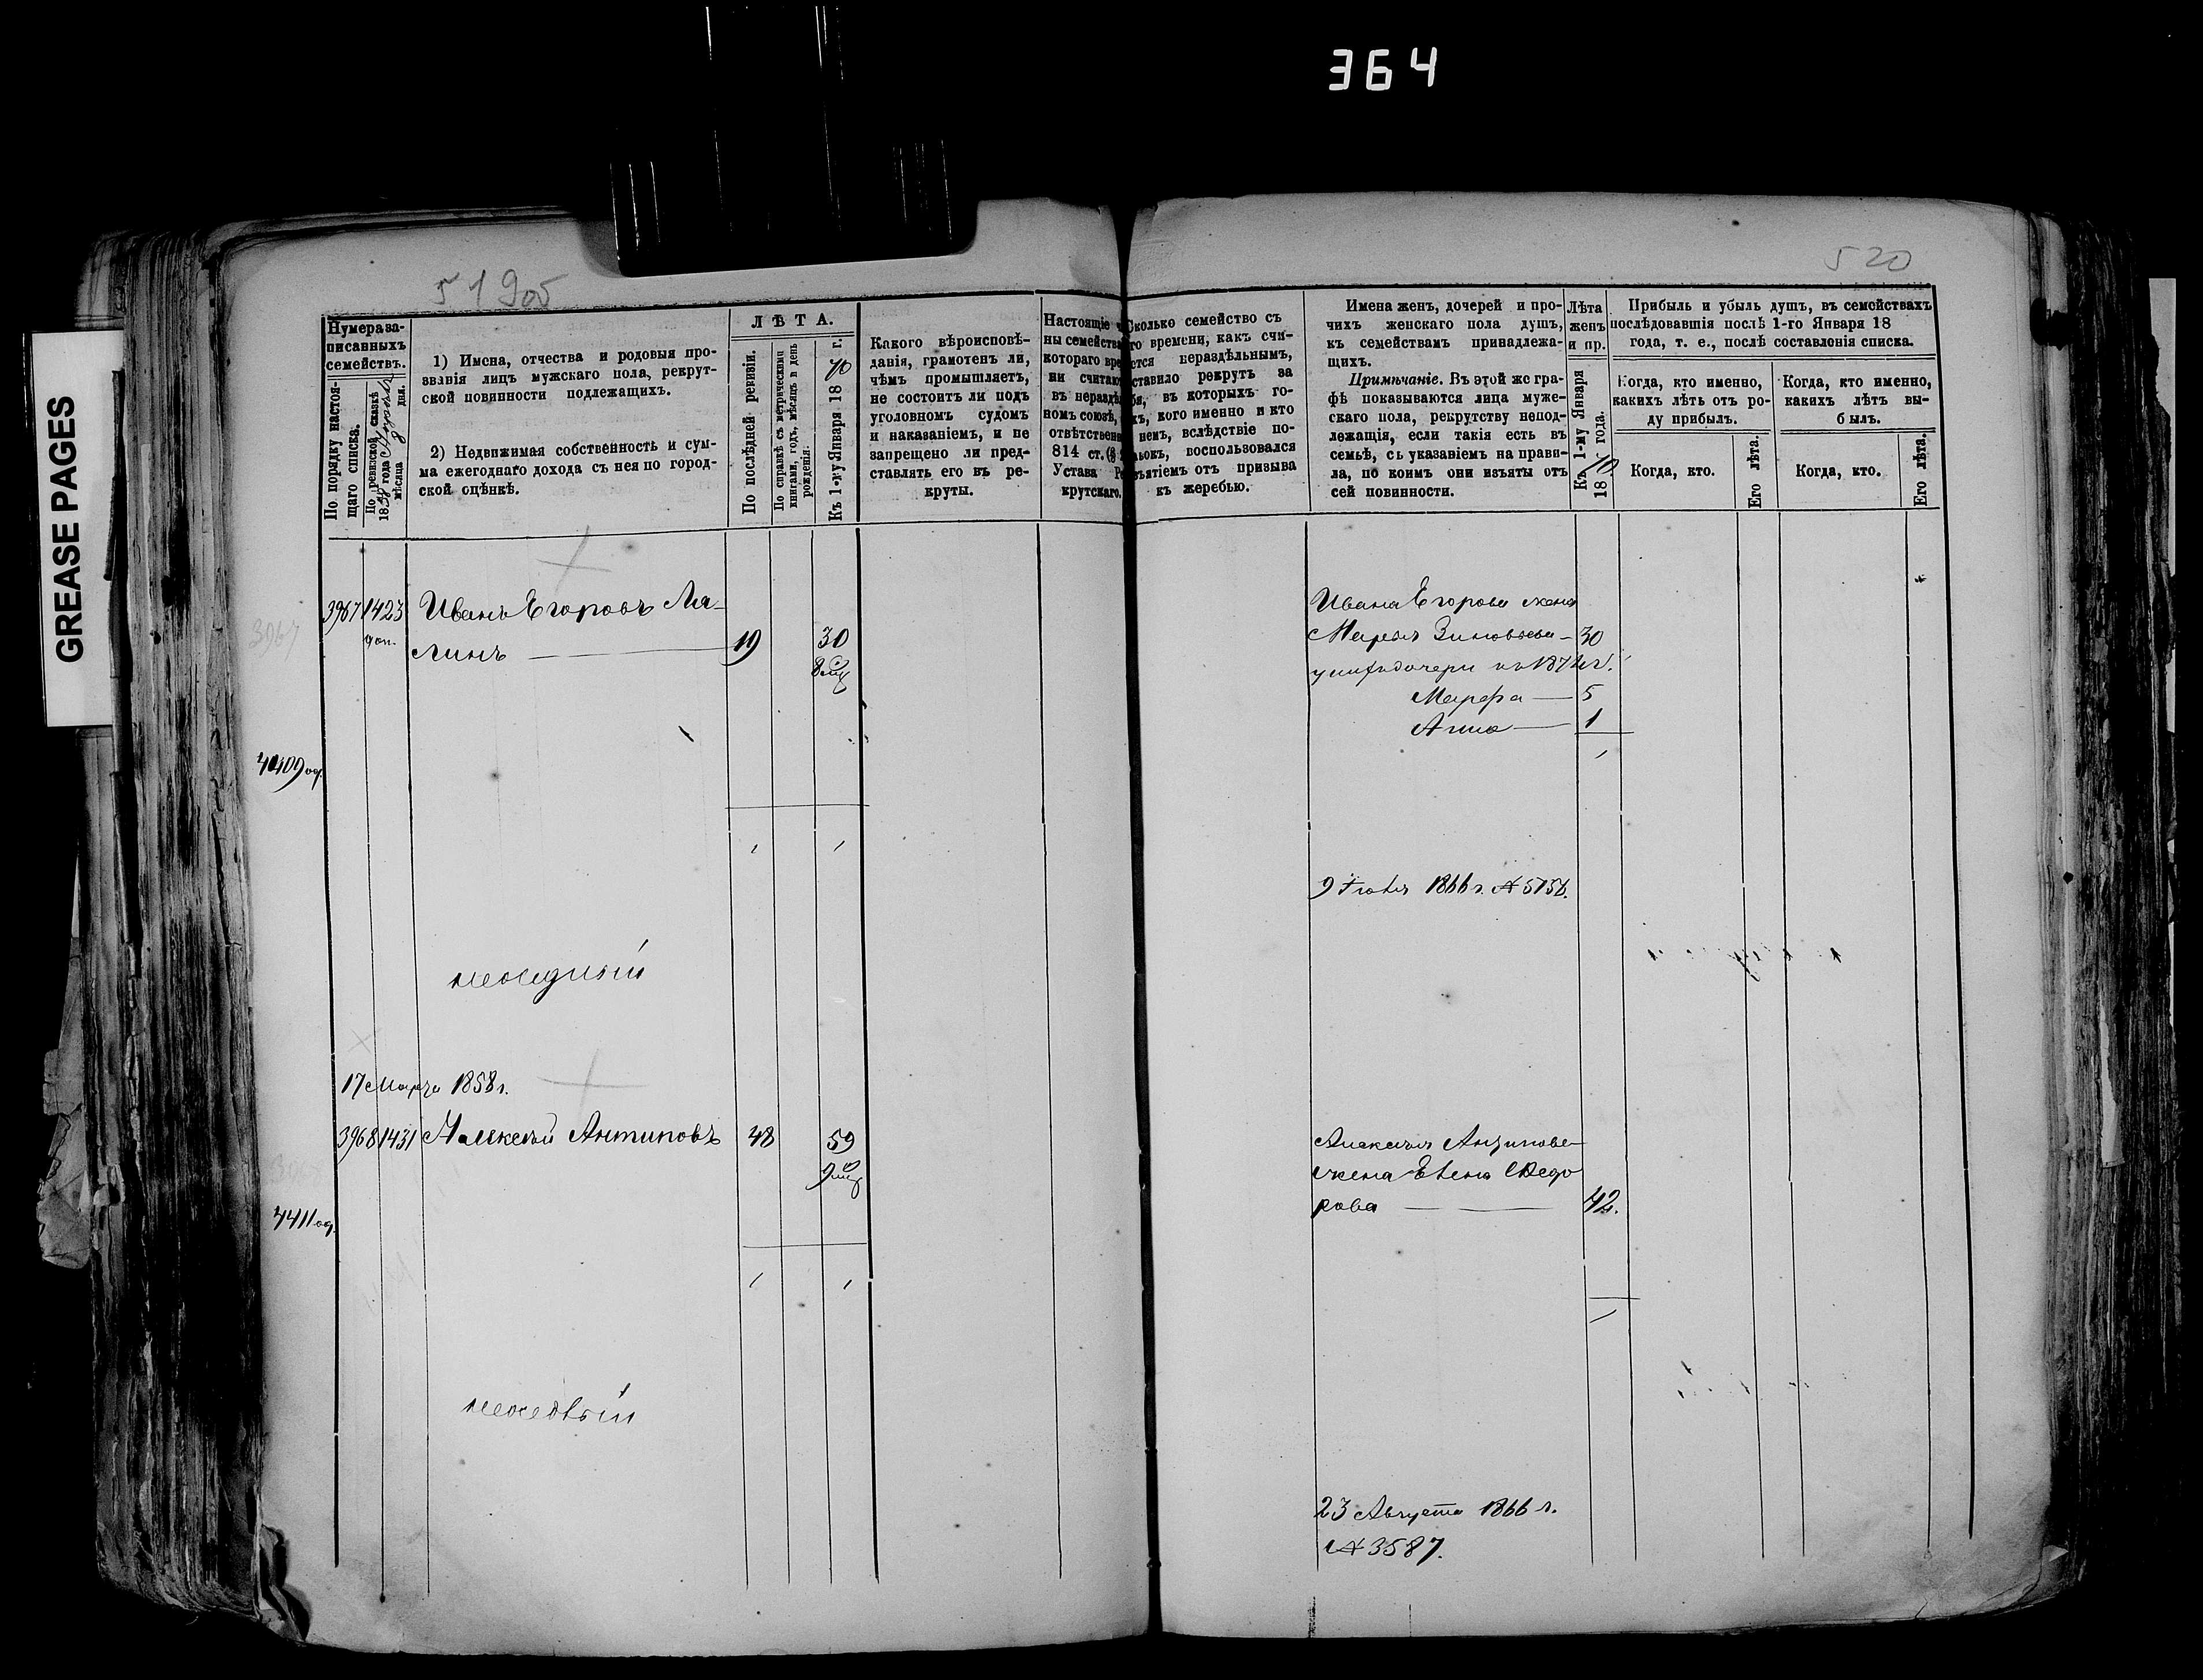 364
GREASE PAGES
519об
520
Нумера за-
писанныхъ
семействъ.
По порядку настоя-
щаго списка.
По ревизской сказкѣ
1858 года
мѣсяца дня.
1) Имена, отчества и родовыя про-
званія лицъ мужскаго пола, рекрут-
ской повинности подлежащихъ.
2) Недвижимая собственность и сум-
ма ежегоднаго дохода съ нея по город-
ской оцѣнкѣ.
ЛѢТА.
По послѣдней ревизіи.
По справкѣ съ метрическими
книгами, годъ, мѣсяцъ и день
рожденія.
Къ 1-му Января 1870 г.
Какого вѣроисповѣ-
данія, грамотенъ ли,
чѣмъ промышляетъ,
не состоитъ ли подъ
уголовномъ судомъ
и наказаніемъ, и не
запрещено ли пред-
ставлять его въ ре-
круты.
Настоящіе
ны семейства
котораго вре
ни считаю
въ нераздѣ
номъ союзѣ,
отвѣтствен
814 ст.
Устава Ре
крутскаго.
Сколько семейство съ
го времени, какъ счи-
ется нераздѣльнымъ,
ставило рекрутъ за
бя, въ которыхъ го-
хъ, кого именно и кто
немъ, вслѣдствіе по-
ъятіемъ отъ призыва
къ жеребью.
Имена женъ, дочерей и про-
чихъ женскаго пола душъ,
къ семействамъ принадлежа-
щихъ.
Примѣчаніе. Въ этой же гра-
фѣ показываются лица муже-
скаго пола, рекрутству непод-
лежащія, если такія есть въ
семьѣ, съ указаніемъ на прави-
ла, по коимъ они изъяты отъ
сей повинности.
Лѣта
женъ
и пр.
Къ 1-му Января
1870 года.
Прибыль и убыль душъ, въ семействахъ
послѣдовавшія послѣ 1-го Января 18
года, т. е., послѣ составленія списка.
Когда, кто именно,
какихъ лѣтъ отъ ро-
ду прибылъ.
Когда, кто.
Его лѣта.
Когда, кто именно,
какихъ лѣтъ вы-
былъ.
Когда, кто.
Его лѣта.
3967 1423 Иванъ Егоровъ Ла-
доп.
линъ — 19 30
8 мѣ
3967
4409 об.
Ивана Егорова жена
Марья Зиновьева — 30
у них дочери по 1874 г.
Марфа — 5
Анна — 1
9 Іюня 1866 г. № 5156.
17 Марта 1858 г.
3968 1431 Алексѣй Антиповъ 48 59
9 мѣ
3968
4411 об.
Алексѣя Антипова
жена Елена Ѳедо
рова — 42.
23 Августа 1866 г.
№ 3587.